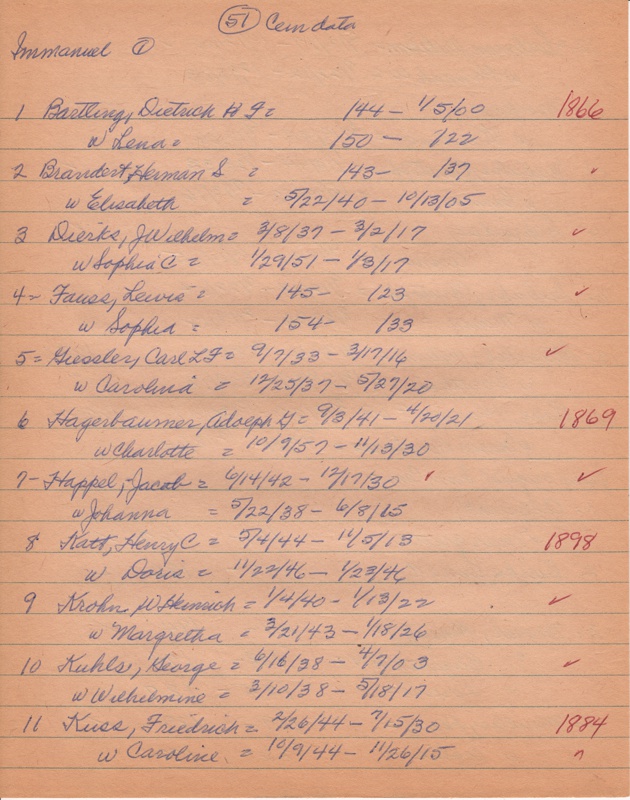 51 Cem data
Immanuel ①
1 Bartling, Dietrich H F = 144 – 1/5/00 1866
w Lena = 150 – 122
2 Brandert, Herman S = 143 – 137 ✓
w Elisabeth = 5/22/40 – 10/13/05
3 Dierks, J Wilhelm = 3/8/37 – 3/2/17 ✓
w Sophia C = 1/29/51 – 1/3/17
4 = Fauss, Lewis = 145 – 123 ✓
w Sophia = 154 – 133
5 = Giessler, Carl L F = 9/7/33 – 3/17/16 ✓
w Carolina = 12/25/37 – 5/27/20
6 Hagerbaumer, Adolph G = 9/3/41 – 4/20/21 1869
w Charlotte = 10/9/57 – 11/13/30
7 – Happel, Jacob = 6/14/42 – 12/17/30 ✓ ✓
w Johanna = 5/22/38 – 6/8/15
8 Katt, Henry C = 5/4/44 – 11/5/13 1898
w Doris = 11/22/46 – 1/23/46
9 Krohn, W Heinrich = 1/4/40 – 1/13/22 ✓
w Margretha = 3/21/43 – 1/18/26
10 Kuhls, George = 6/16/38 – 4/7/03 ✓
w Wilhelmine = 3/10/38 – 5/18/17
11 Kuss, Friedrich = 2/26/44 – 7/15/30 1884
w Caroline = 10/9/44 – 11/26/15